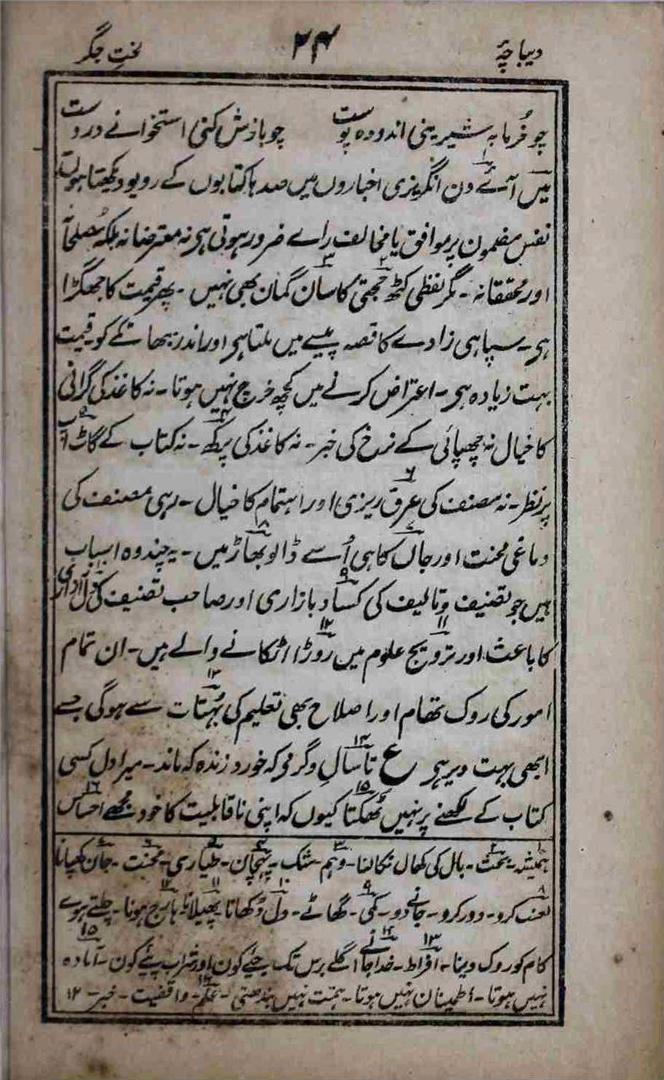 دیباچۂ ۲۴ لختِ جگر
چو خُرما بہ شیرینی اندودہ پوست چو بازش کنی استخوانے دروست
میں آئے دن انگریزی اخباروں میں صدہا کتابوں کے رویو دیکھتا ہوں
نفس مضمون پر موافق یا مخالف راے ضرور ہوتی ہی نہ معترضانہ بلکہ مُصلحانہ
اور محققانہ - مگر لفظی کٹھ حجتی کا سان گمان بھی نہیں - پھر قیمت کا جھگڑا
ہی - سپاہی زادے کا قصہ پیسے میں ملتا ہی اور اندر سبھا تکے کو قیمت
بہت زیادہ ہی - اعتراض کرنے میں کچھ خرچ نہیں ہوتا - نہ کاغذ کی گرانی
کا خیال نہ چھپائی کے نرخ کی خبر - نہ کاغذ کی پرکھ - نہ کتاب کے گاٹ
پر نظر - نہ مصنف کی عرق ریزی اور اہتمام کا خیال - رہی مصنف کی
دماغی محنت اور جاں کاہی اُسے ڈالو بھاڑ میں - یہ چند وہ اسباب
ہیں جو تصنیف و تالیف کی کساد بازاری اور صاحب تصنیف کی دل آزاری
کا باعث اور ترویج علوم میں روڑا اٹکانے والے ہیں - ان تمام
امور کی روک تھام اور اصلاح بھی تعلیم کی بُہتات سے ہوگی جسے
ابھی بہت دیر ہی ع تا سالِ دگر می کہ خورد زندہ کہ ماند - میرا دل کسی
کتاب کے لکھنے پر نہیں ٹھکتا کیوں کہ اپنی ناقابلیت کا خود مجھے احساس
ہمیشہ - بحث - بال کی کھال نکالنا - وہم - شک - پہچان - طیاری - محنت - جان کھپانا
لعنت کرو - دور کرو - جانے دو - کمی - گھاٹے - دل دکھانا - پھیلانا - ہارج ہونا - چلتے ہوے
کام کو روک دینا - افراط - خدا جانے اگلے برس تک جئے کون اور شراب پئے کون - آمادہ
نہیں ہوتا - اطمینان نہیں ہوتا - ہمت نہیں بندھتی - علم - واقفیت - خبر - ۱۲